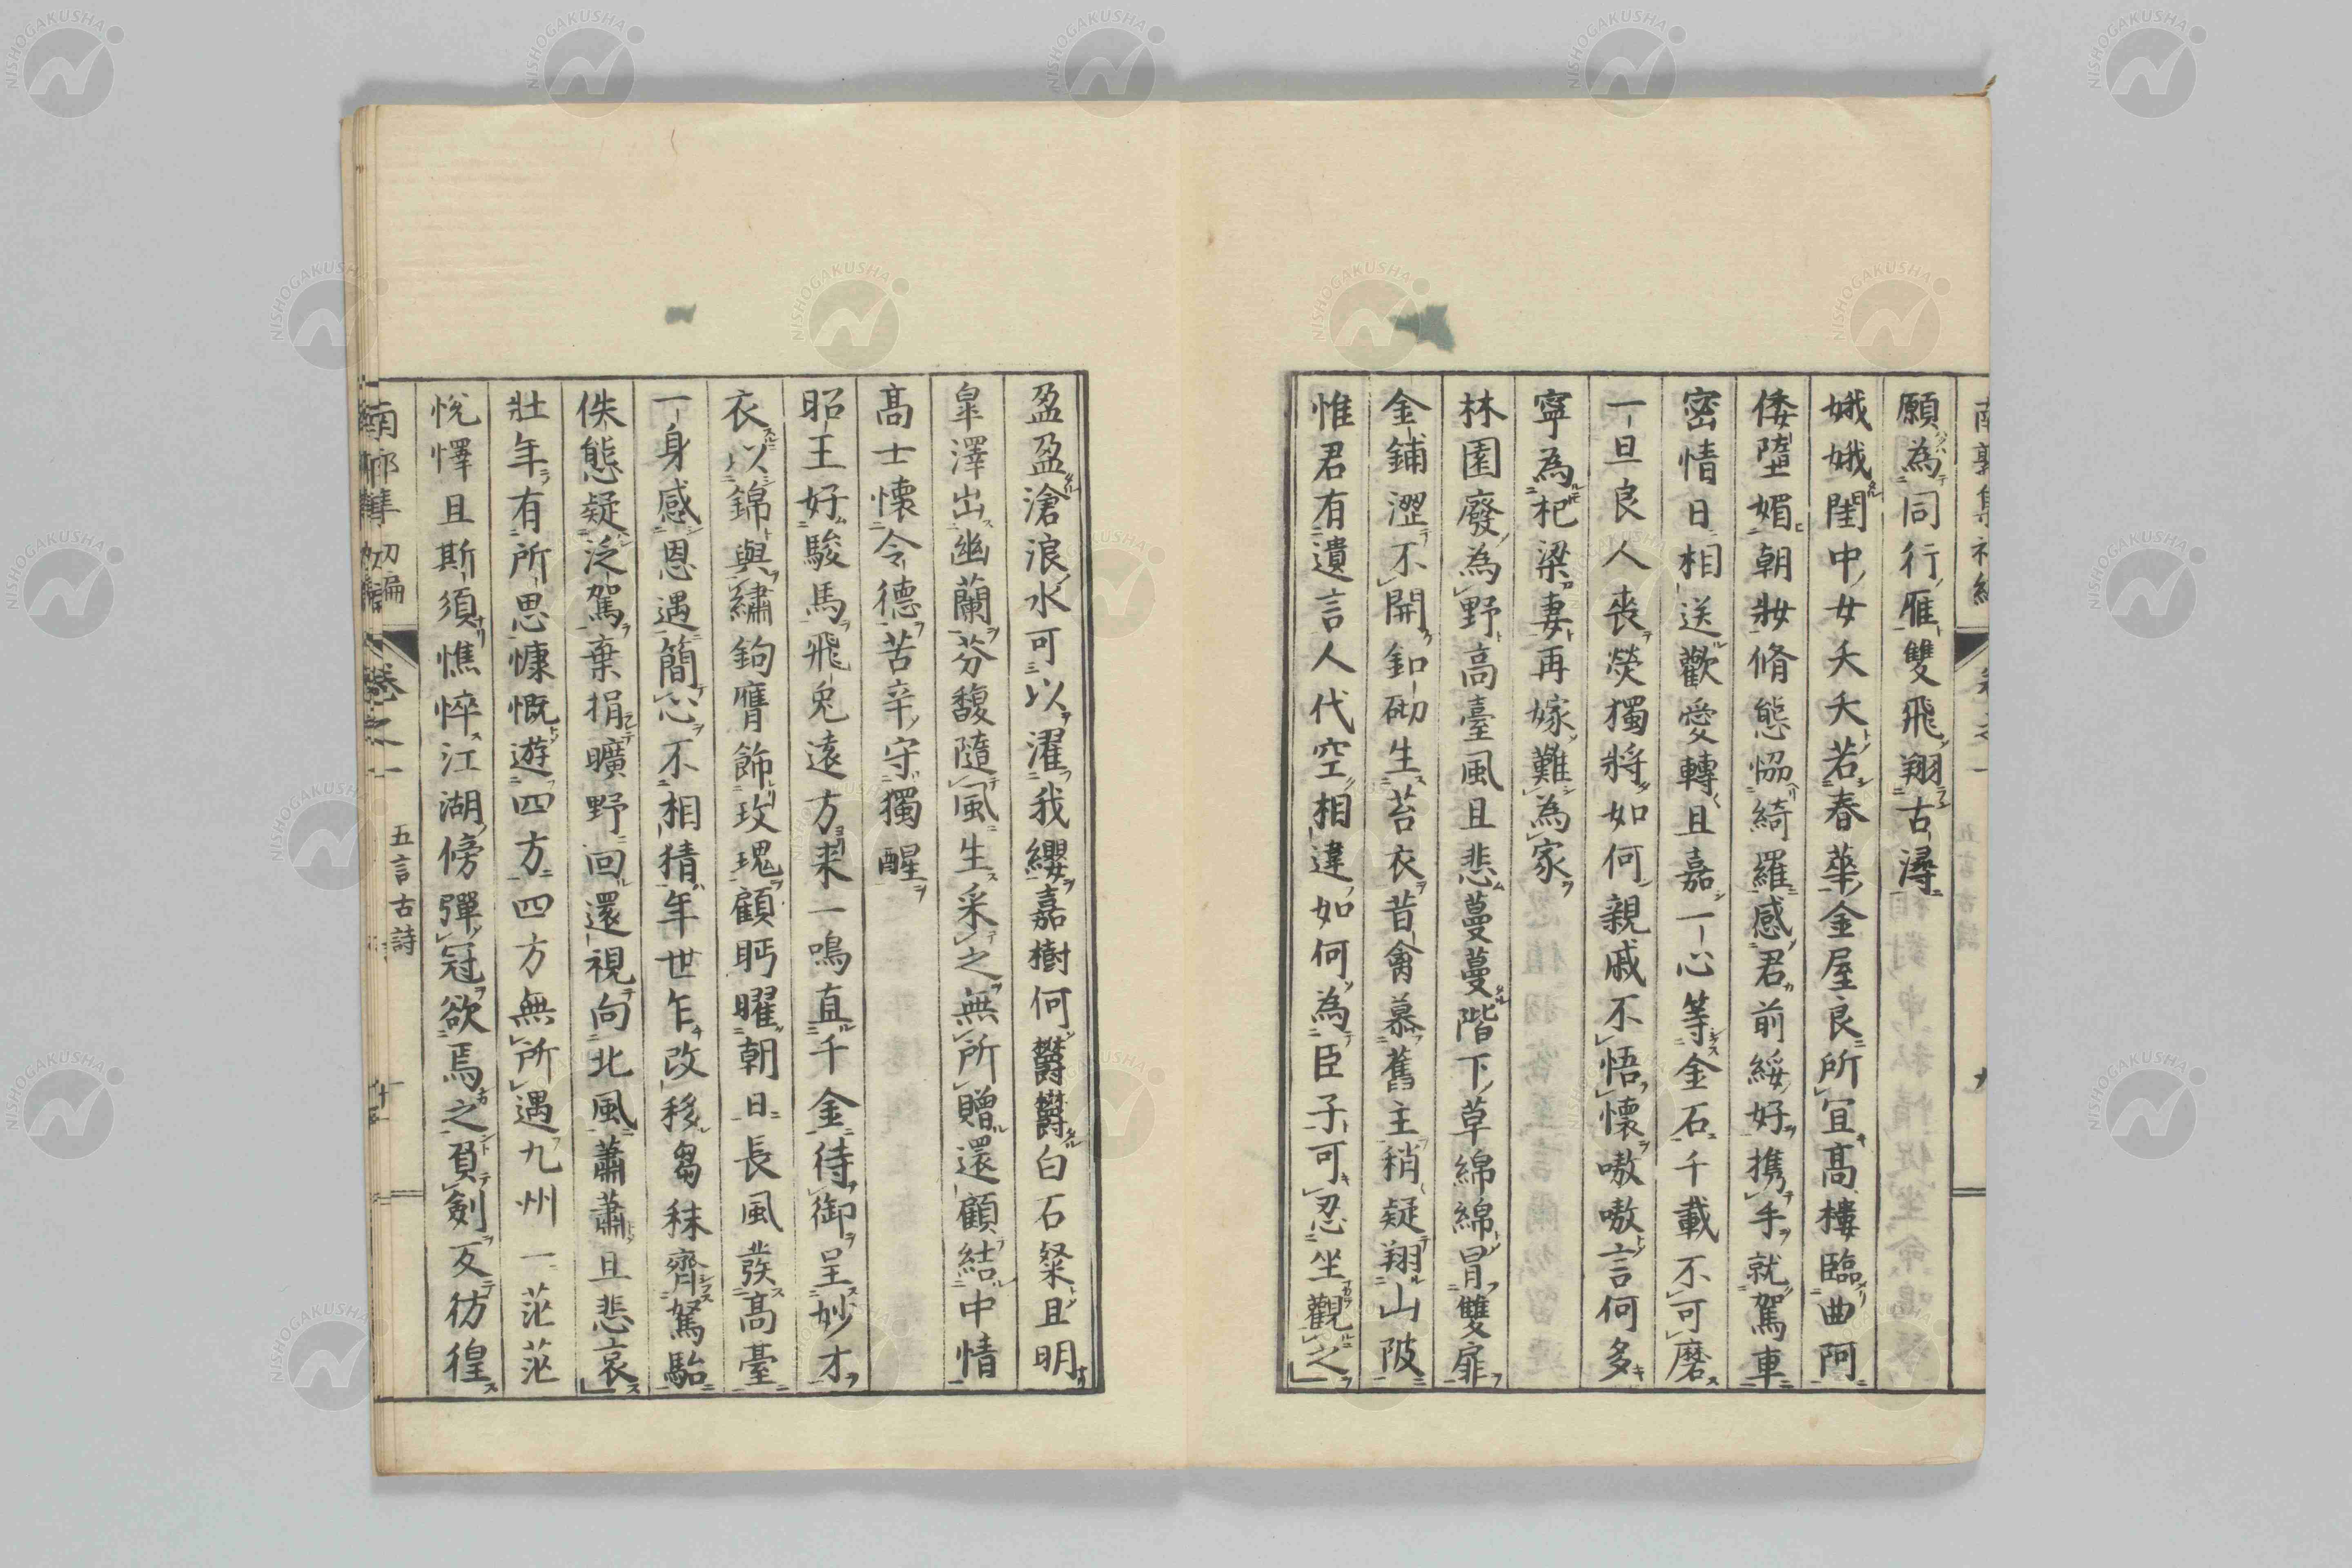 願為同行雁雙飛翔古潯
娥娥閨中女夭夭若春華金屋良所宜高樓臨曲阿
倭墮媚朝妝脩態恊綺羅感君前綏好携手就駕車
密情日相送歡愛轉且嘉一心等金石千載不可磨
一旦良人喪煢獨將如何親戚不悟懷嗷嗷言何多
寧為杞梁妻再嫁難為家
林園廢為野高臺風且悲蔓蔓階下草綿綿冒雙扉
金鋪澀不開釦砌生苔衣昔禽慕舊主稍疑翔山陂
惟君有遺言人代空相違如何為臣子可忍坐觀之
盈盈滄浪水可以濯我纓嘉樹何欝欝白石粲且明
皐澤出幽蘭芬馥隨風生采之無所贈還顧結中情
高士懷令德苦辛守獨醒
昭王好駿馬飛兎遠方来一鳴直千金待御呈妙才
衣以錦與繡鉤膺飾玫瑰顧眄曜朝日長風發高臺
一身感恩遇簡心不相猜年世乍改移芻秣齊駑駘
佚態疑泛駕棄捐曠野回還視向北風蕭蕭且悲哀
壯年有所思慷慨遊四方四方無所遇九州一茫茫
悅懌且斯須憔悴江湖傍彈冠欲焉之負劍反彷徨
五言古詩
NISHOGAKUSHA